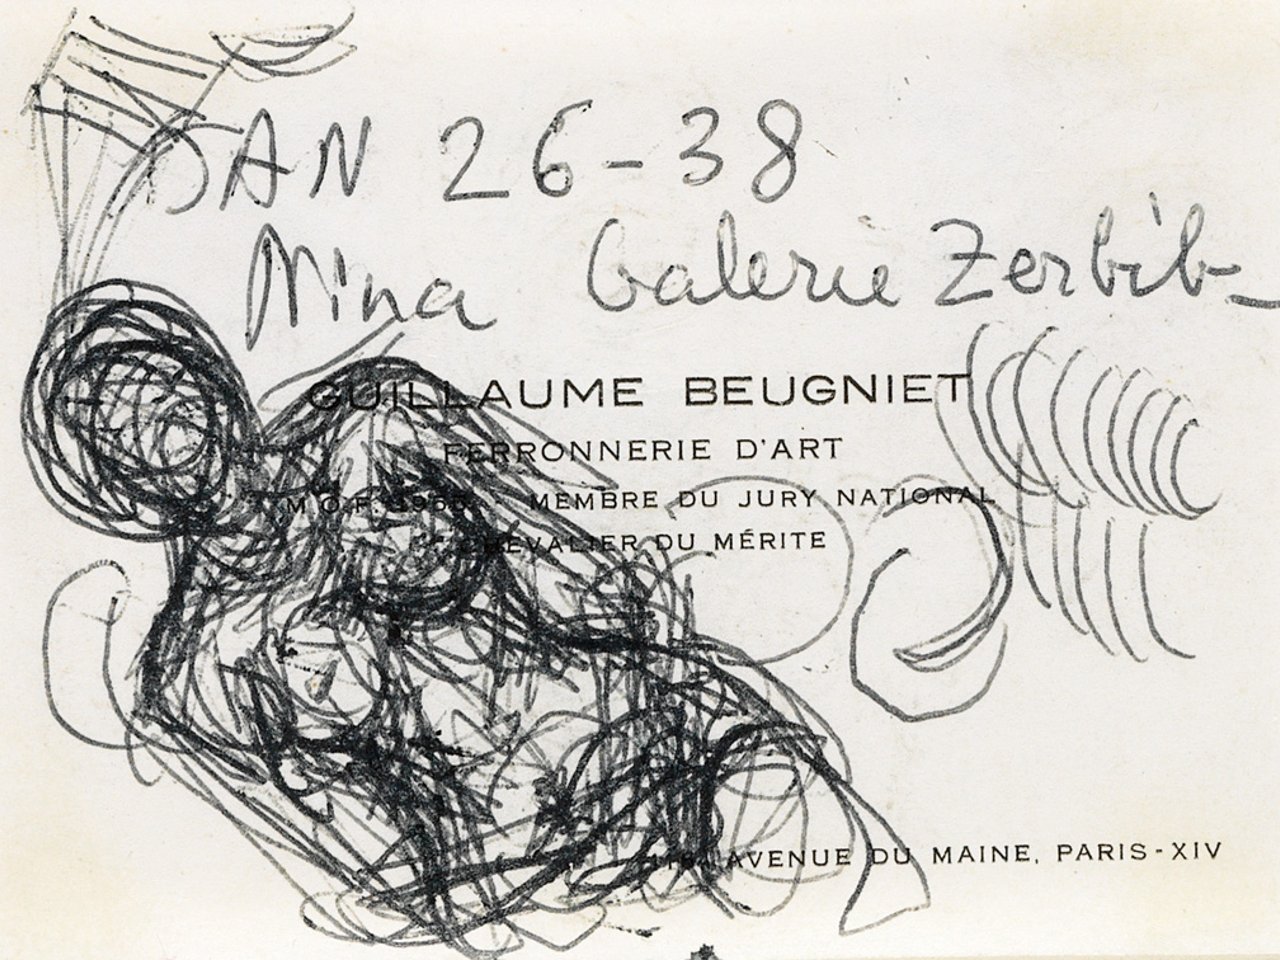 DAN 26-38
Nina Galerie Zerbib
GUILLAUME BEUGNIET
FERRONNERIE D'ART
M.O.F. MEMBRE DU JURY NATIONAL
CHEVALIER DU MÉRITE
AVENUE DU MAINE, PARIS-XIV